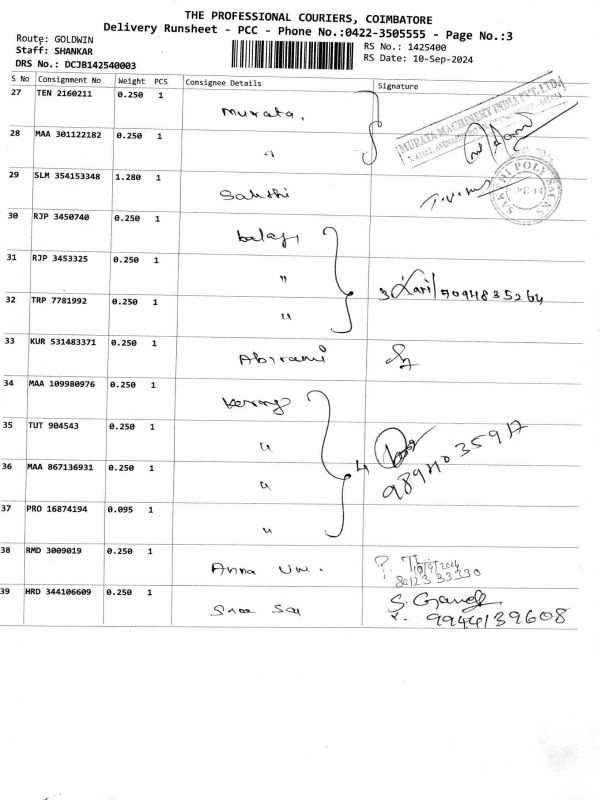 THE PROFESSIONAL COURIERS, COIMBATORE
Delivery Runsheet - PCC - Phone No.:0422-3505555 - Page No.:3
Route: GOLDWIN
Staff: SHANKAR
DRS No.: DCJB142540003
RS No.: 1425400
RS Date: 10-Sep-2024
S No Consignment No Weight PCS Consignee Details Signature
27 TEN 2160211 0.250 1 Murata.
MURATA MACHINERY INDIA PVT.LTD.
28 MAA 301122182 0.250 1 "
29 SLM 354153348 1.280 1 Sakthi
SAKTHI POLY SACKS
30 RJP 3450740 0.250 1 balaji
31 RJP 3453325 0.250 1 "
3 Hari/7094835264
32 TRP 7781992 0.250 1 "
33 KUR 531483371 0.250 1 Abirami
34 MAA 109980976 0.250 1
35 TUT 904543 0.250 1 "
4
9894035917
36 MAA 867136931 0.250 1 "
37 PRO 16874194 0.095 1 "
38 RMD 3009019 0.250 1 Anna
39 HRD 344106609 0.250 1 Sree Sai
S. Gandhi
9944139608